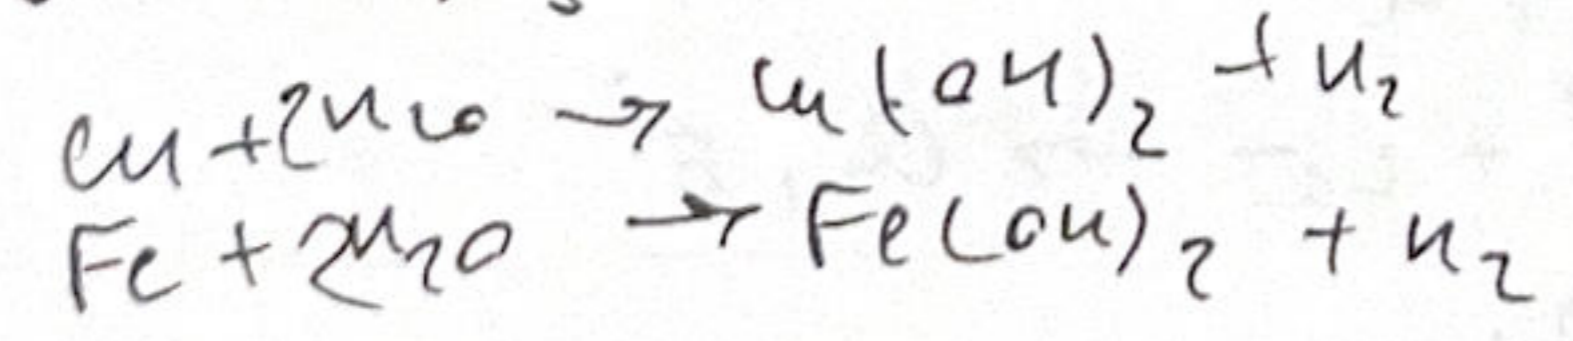 Cu + 2H₂O → Cu(OH)₂ + H₂
Fe + 2H₂O → Fe(OH)₂ + H₂